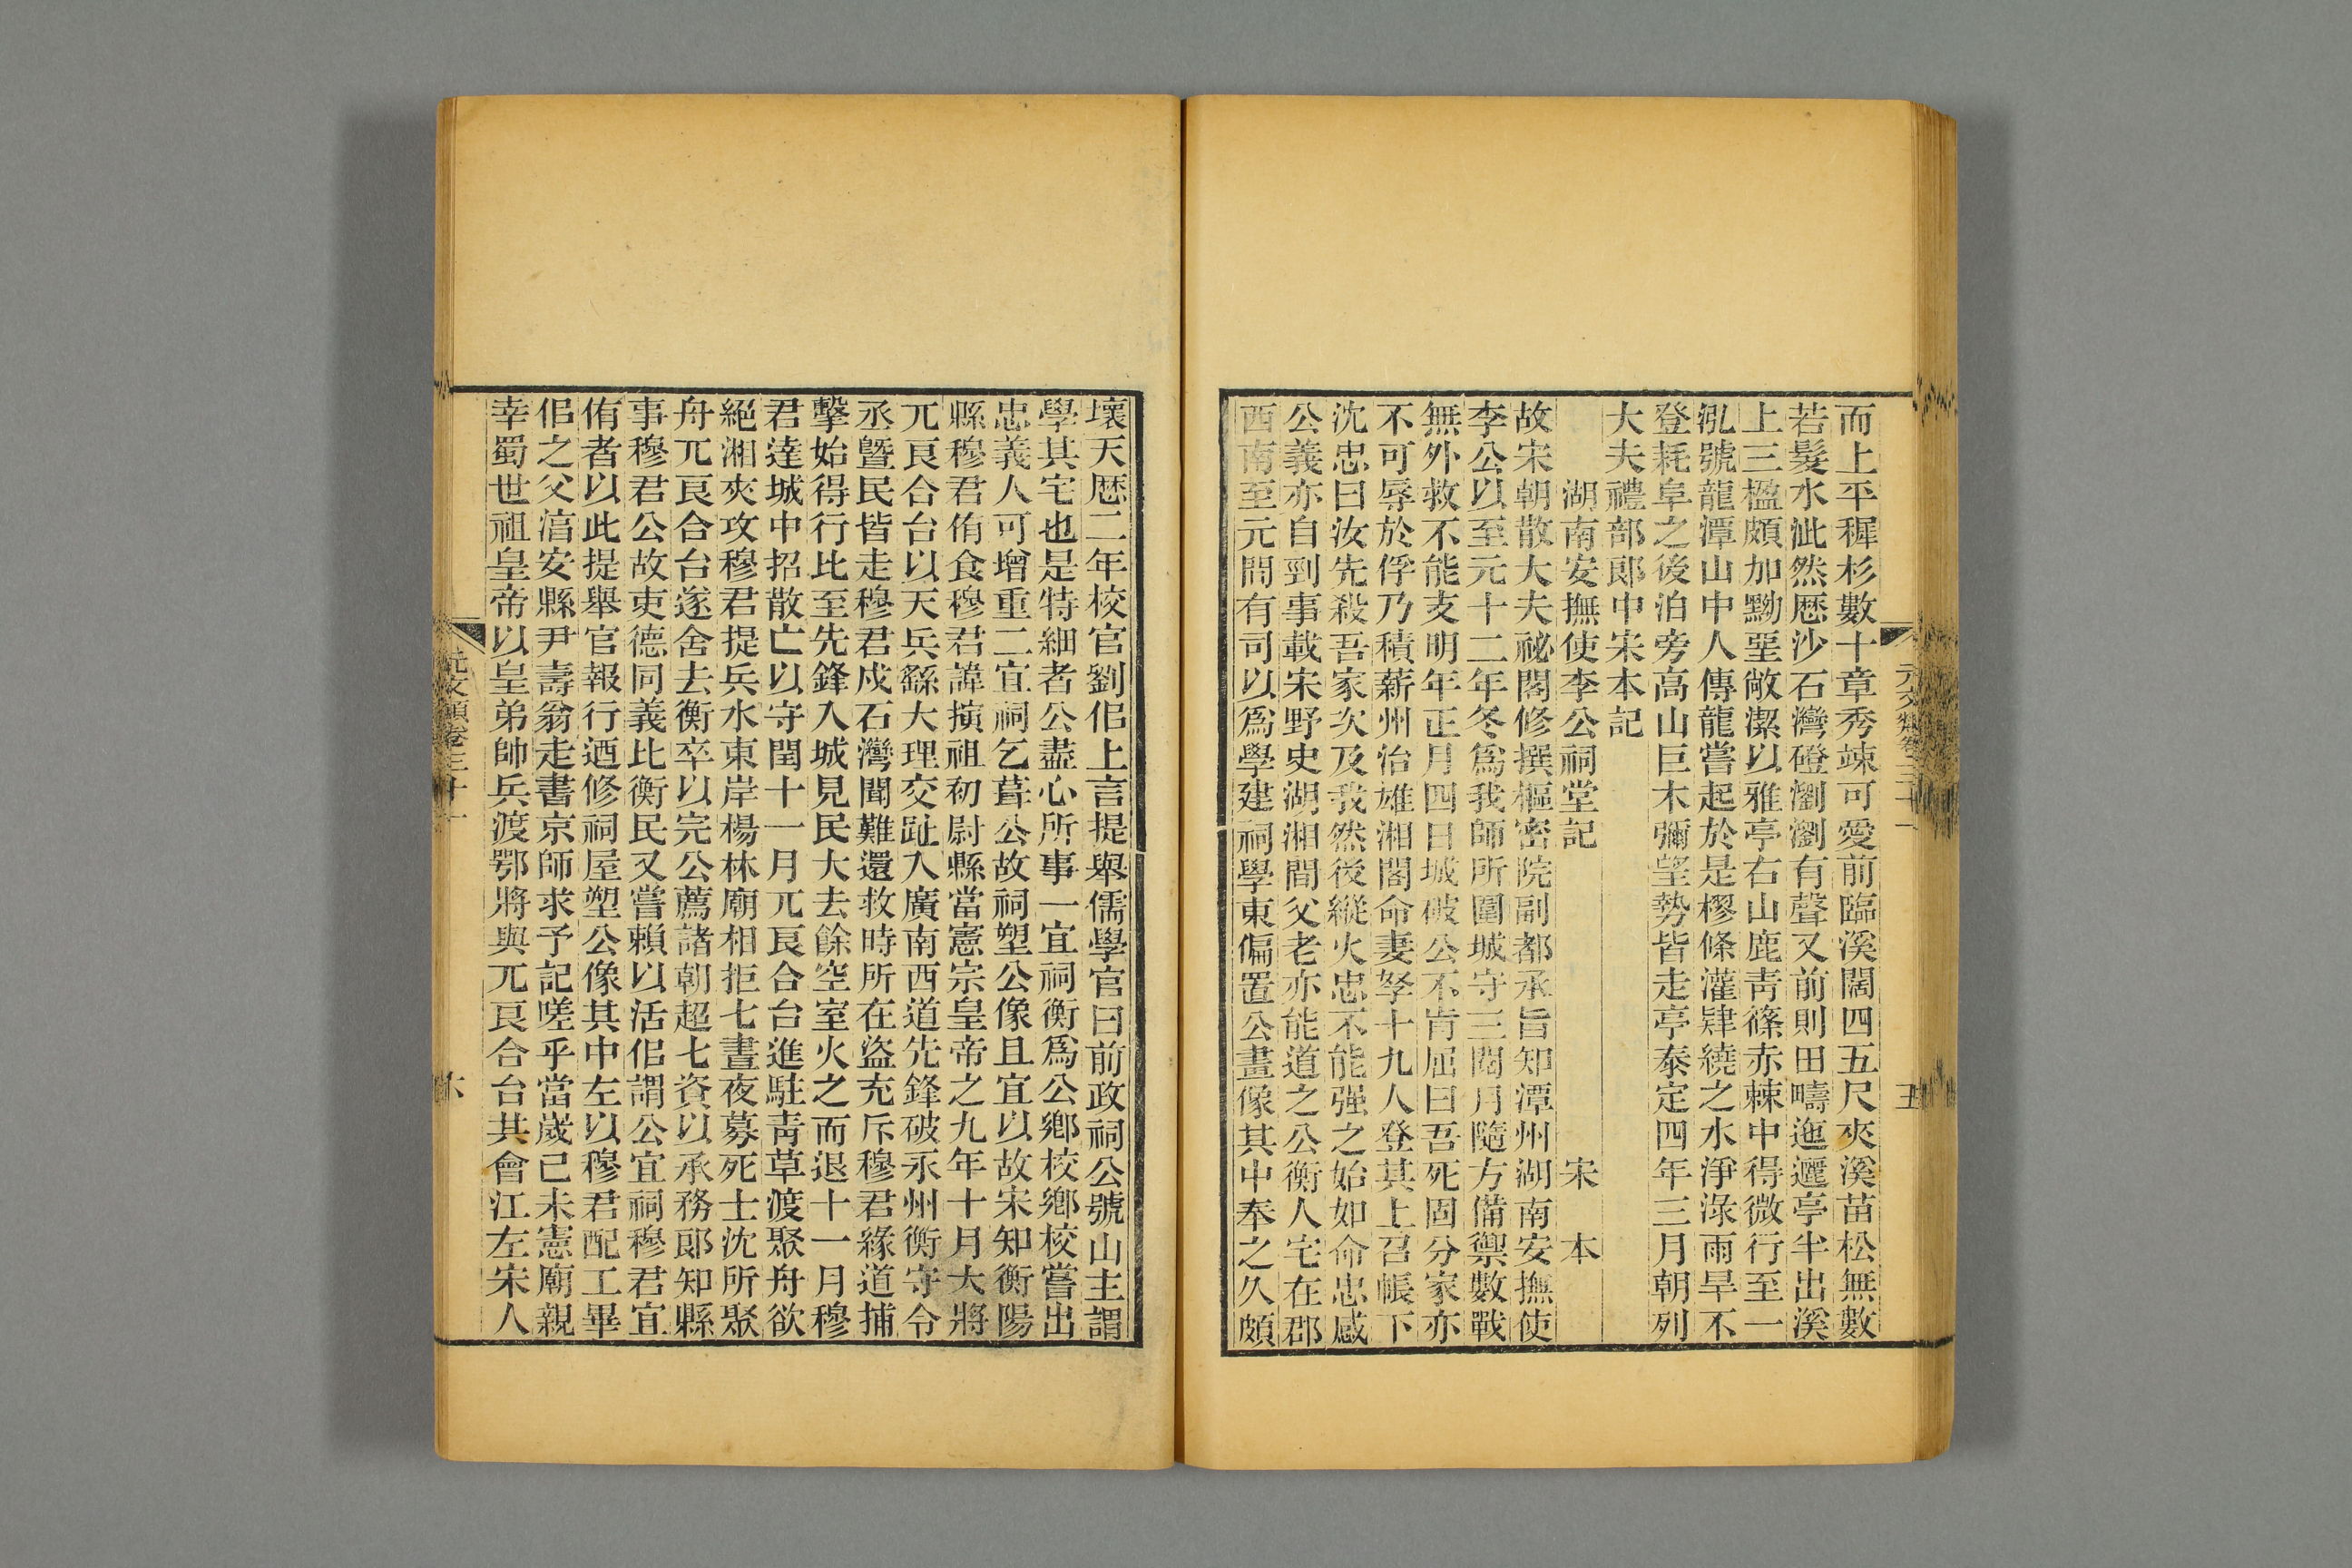 而上平穉杉數十章秀竦可愛前臨溪闊四五尺夾溪苗松無數
若髮水泚然厯沙石灣磴瀏瀏有聲又前則田疇迤邐亭半出溪
上三楹頗加黝堊敞潔以雅亭右山鹿靑篠赤棘中得微行至一
泓號龍潭山中人傳龍嘗起於是樛條灌肄繞之水淨淥雨旱不
登耗阜之後泊旁高山巨木彌望勢皆走亭泰定四年三月朝列
大夫禮部郞中宋本記
湖南安撫使李公祠堂記 宋本
故宋朝散大夫祕閣修撰樞密院副都承旨知潭州湖南安撫使
李公以至元十二年冬爲我師所圍城守三閱月隨方備禦數戰
無外救不能支明年正月四日城破公不肯屈曰吾死固分家亦
不可辱於俘乃積薪州治雄湘閣命妻孥十九人登其上召帳下
沈忠曰汝先殺吾家次及我然後縱火忠不能强之始如命忠感
公義亦自剄事載宋野史湖湘間父老亦能道之公衡人宅在郡
西南至元間有司以爲學建祠學東偏置公畫像其中奉之久頗
元文類卷三十一
五
壞天厯二年校官劉侣上言提舉儒學官曰前政祠公號山主謂
學其宅也是特細者公盡心所事一宜祠衡爲公鄕校鄕校嘗出
忠義人可增重二宜祠乞葺公故祠塑公像且宜以故宋知衡陽
縣穆君侑食穆君諱演祖初尉縣當憲宗皇帝之九年十月大將
兀良合台以天兵繇大理交趾入廣南西道先鋒破永州衡守令
丞曁民皆走穆君戍石灣聞難還救時所在盜充斥穆君緣道捕
擊始得行比至先鋒入城見民大去餘空室火之而退十一月穆
君達城中招散亡以守閏十一月兀良合台進駐靑草渡聚舟欲
絕湘夾攻穆君提兵水東岸楊林廟相拒七晝夜募死士沈所聚
舟兀良合台遂舍去衡卒以完公薦諸朝超七資以承務郞知縣
事穆君公故吏德同義比衡民又嘗賴以活侣謂公宜祠穆君宜
侑者以此提舉官報行迺修祠屋塑公像其中左以穆君配工畢
侣之父淯安縣尹壽翁走書京師求予記嗟乎當嵗己未憲廟親
幸蜀世祖皇帝以皇弟帥兵渡鄂將與兀良合台共會江左宋人
元文類卷三十一
六